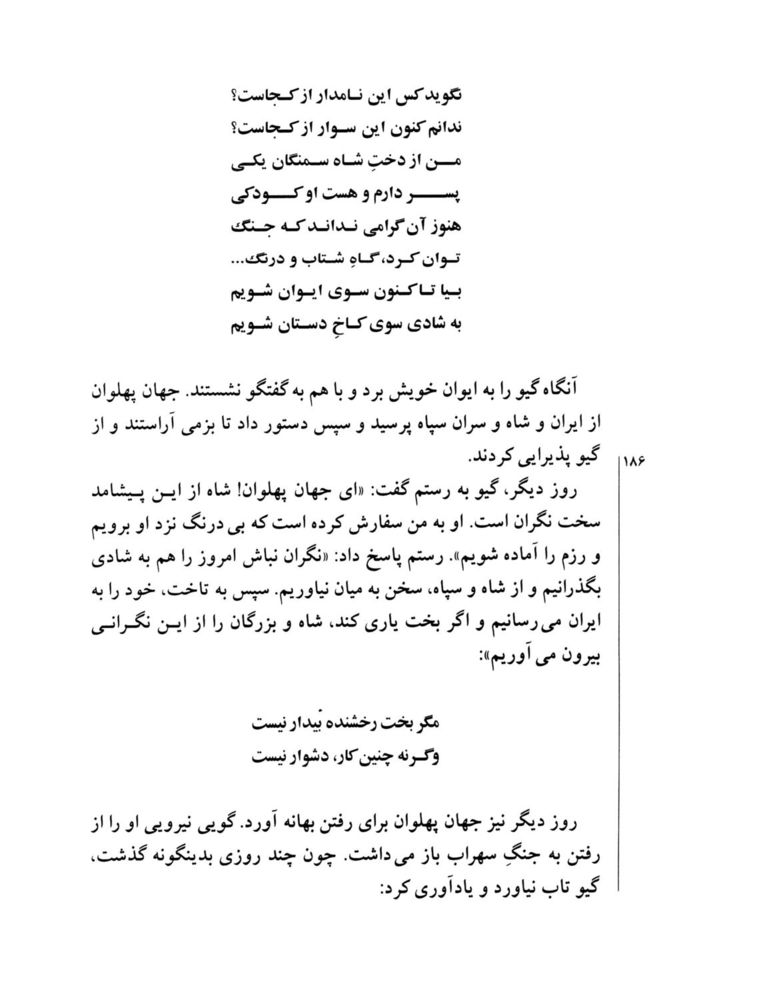 نگوید کس این نامدار از کجاست؟
ندانم کنون این سوار از کجاست؟
من از دختِ شاه سمنگان یکی
پسر دارم و هست او کودکی
هنوز آن گرامی نداند که جنگ
توان کرد، گاهِ شتاب و درنگ...
بیا تا کنون سوی ایوان شویم
به شادی سوی کاخِ دستان شویم
آنگاه گیو را به ایوان خویش برد و با هم به گفتگو نشستند. جهان پهلوان
از ایران و شاه و سران سپاه پرسید و سپس دستور داد تا بزمی آراستند و از
گیو پذیرایی کردند.
۱۸۶
روز دیگر، گیو به رستم گفت: «ای جهان پهلوان! شاه از این پیشامد
سخت نگران است. او به من سفارش کرده است که بی درنگ نزد او برویم
و رزم را آماده شویم». رستم پاسخ داد: «نگران نباش امروز را هم به شادی
بگذرانیم و از شاه و سپاه، سخن به میان نیاوریم. سپس به تاخت، خود را به
ایران می رسانیم و اگر بخت یاری کند، شاه و بزرگان را از این نگرانی
بیرون می آوریم»:
مگر بخت رخشنده بیدار نیست
وگرنه چنین کار، دشوار نیست
روز دیگر نیز جهان پهلوان برای رفتن بهانه آورد. گویی نیرویی او را از
رفتن به جنگِ سهراب باز می داشت. چون چند روزی بدینگونه گذشت،
گیو تاب نیاورد و یادآوری کرد: